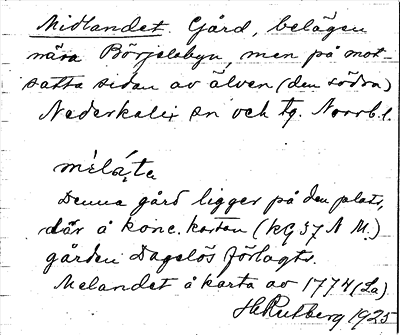 Midlandet. Gård, belägen
nära Börjelsbyn, men på mot-
satta sidan av älven (den södra)
Nederkalix sn och tg. Norrb. l.
mèlàta
Denna gård ligger på den plats,
där å konc. kartan (KG 37 N M.)
gården Dagslös förlagts.
Melandet å karta av 1774 (La)
H Rutberg 1925